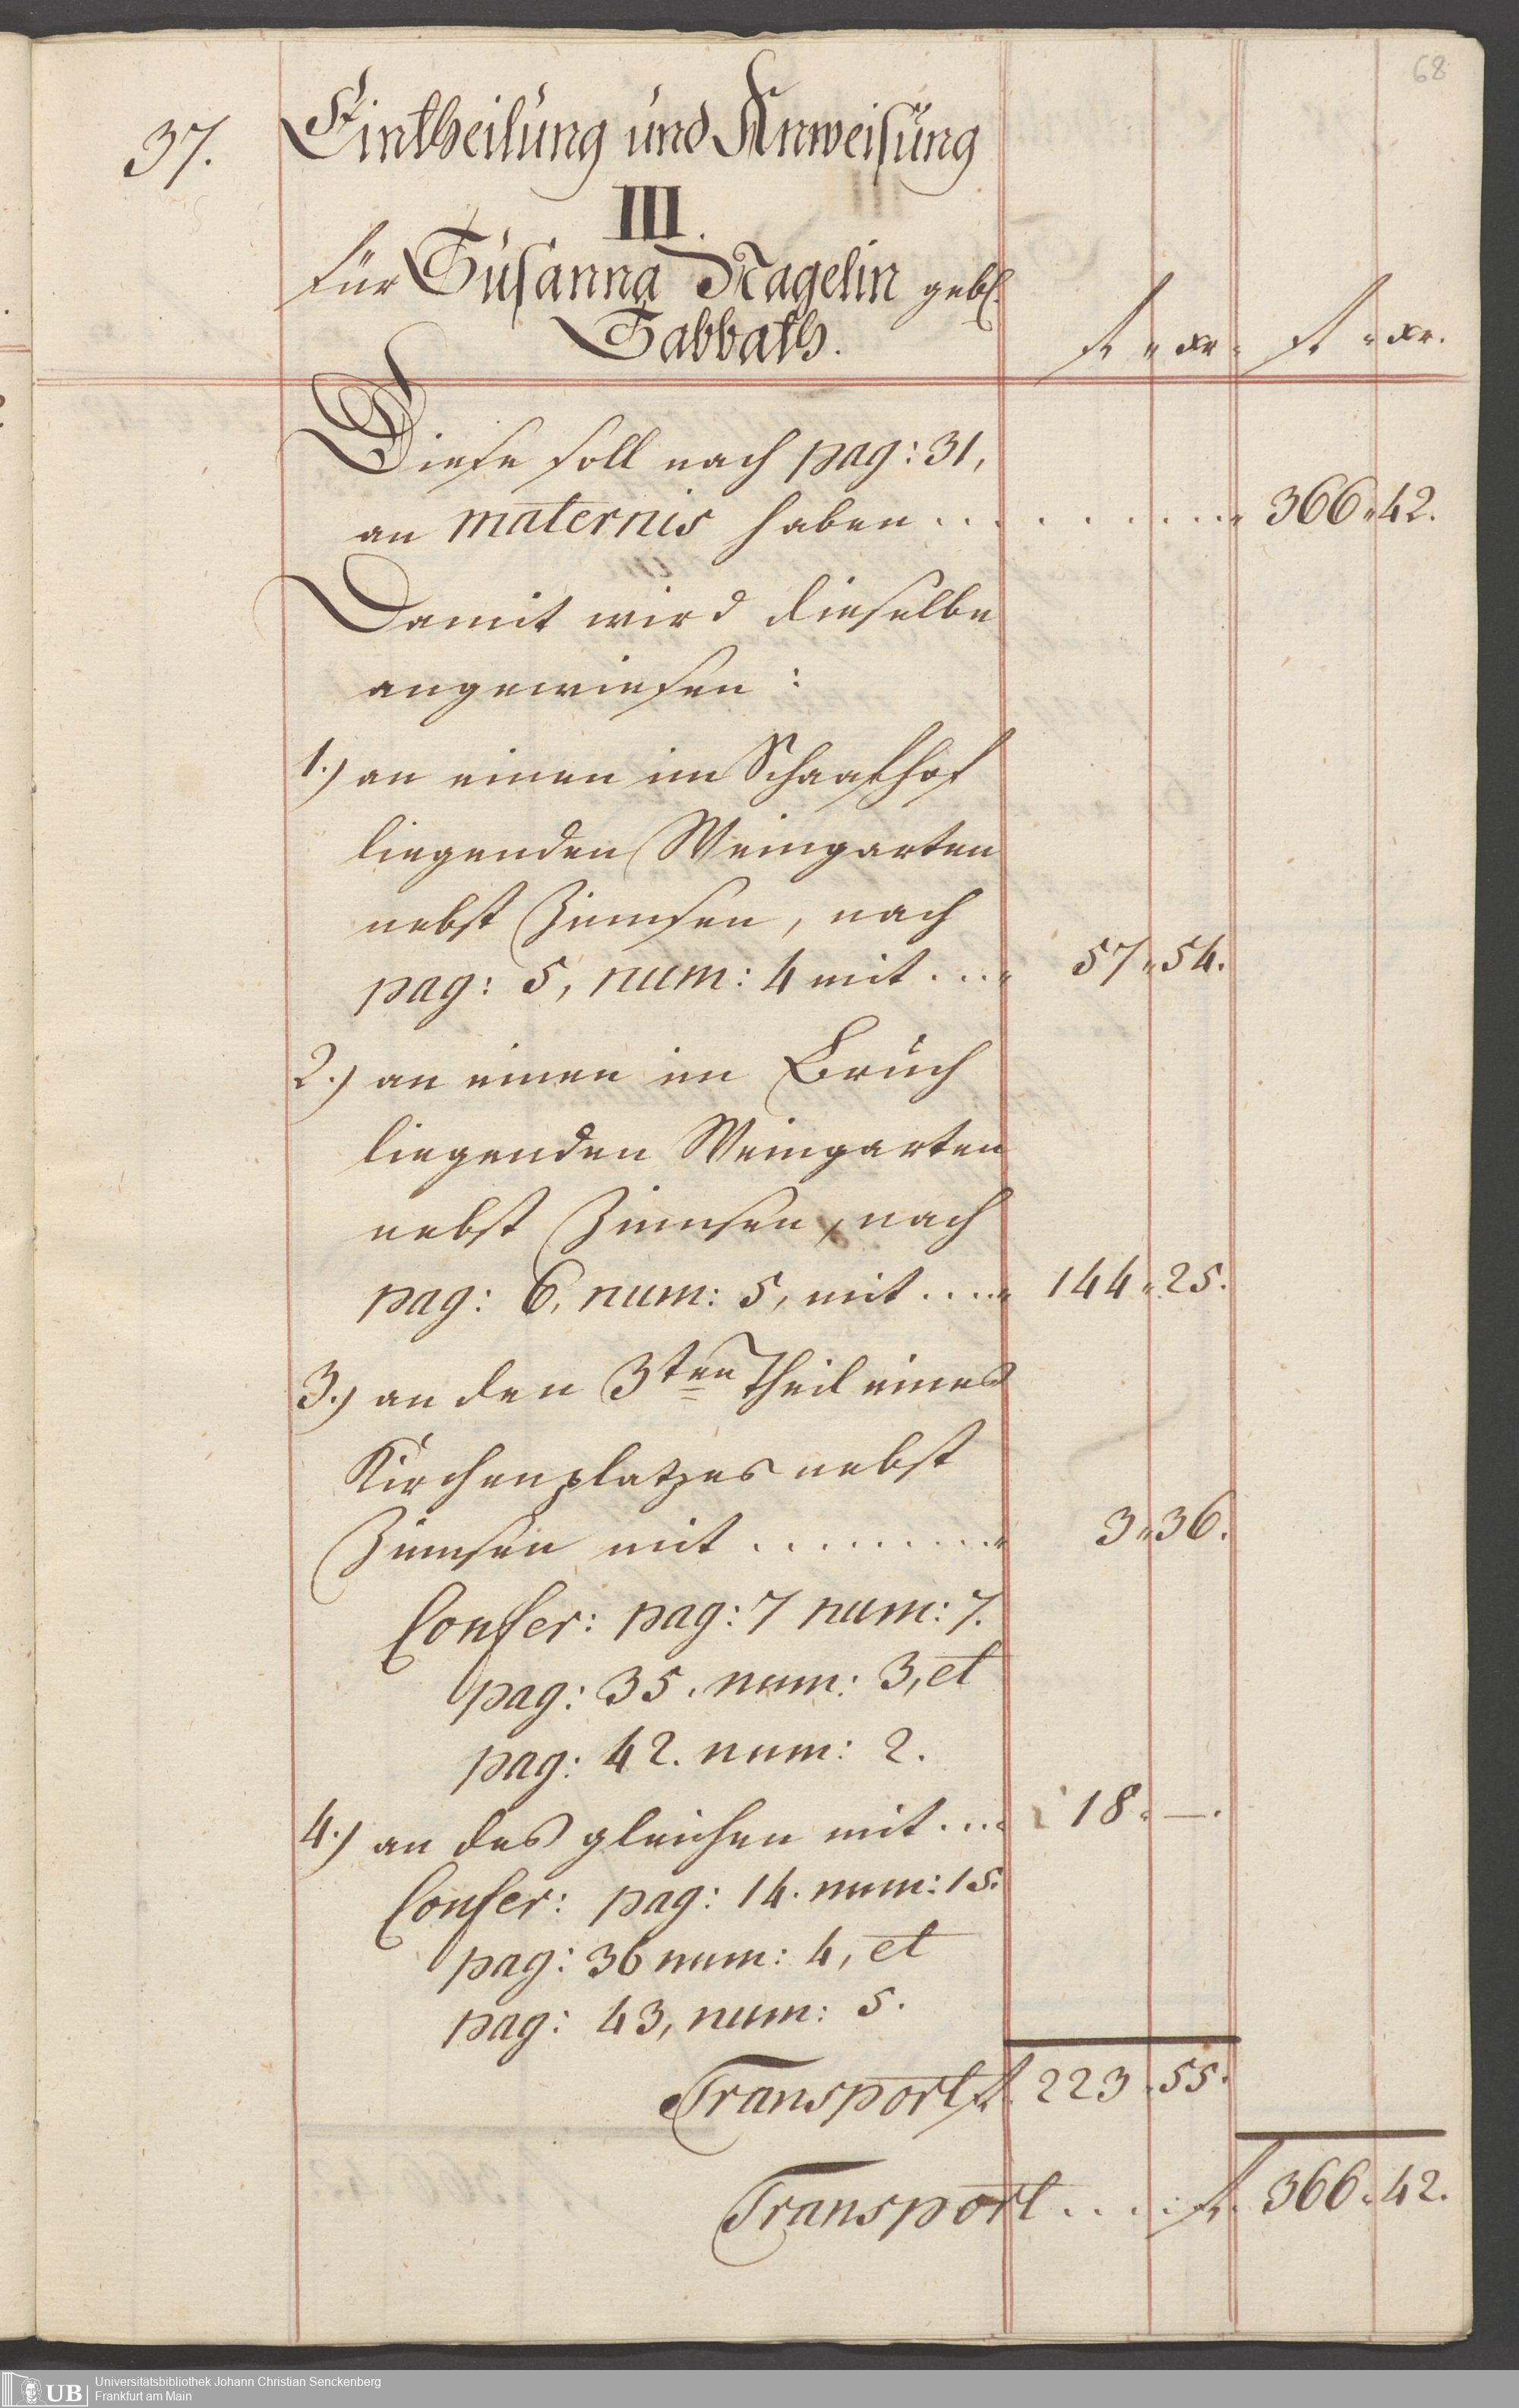 68
37.
Eintheilung und Anweisung
III.
für Susanna Nagelin geb.
Sabbath.
fl. xr. fl. xr.
Diese soll nach pag: 31,
an maternis haben . . . . . . . . . . 366. 42.
Damit wird dieselbe
angewiesen:
1.) an einen im Schaafhof
liegenden Weingarten
nebst Zinnsen, nach
pag: 5, num: 4 mit . . . 57. 54.
2.) an einen im Bruch
liegenden Weingarten
nebst Zinnsen, nach
pag: 6, num: 5, mit . . . . 144. 25.
3.) an den 3ten Theil eines
Kirchenplatzes nebst
Zinnsen mit . . . . . . . . . 3. 36.
Confer: pag: 7 num: 7.
pag: 35. num: 3, et
pag: 42. num: 2.
4.) an des gleichen mit . . . 18. —.
Confer: pag: 14. num: 15.
pag: 36 num: 4, et
pag: 43, num: 5.
Transport fl. 223. 55.
Transport . . . . fl. 366. 42.
UB
Universitätsbibliothek Johann Christian Senckenberg
Frankfurt am Main